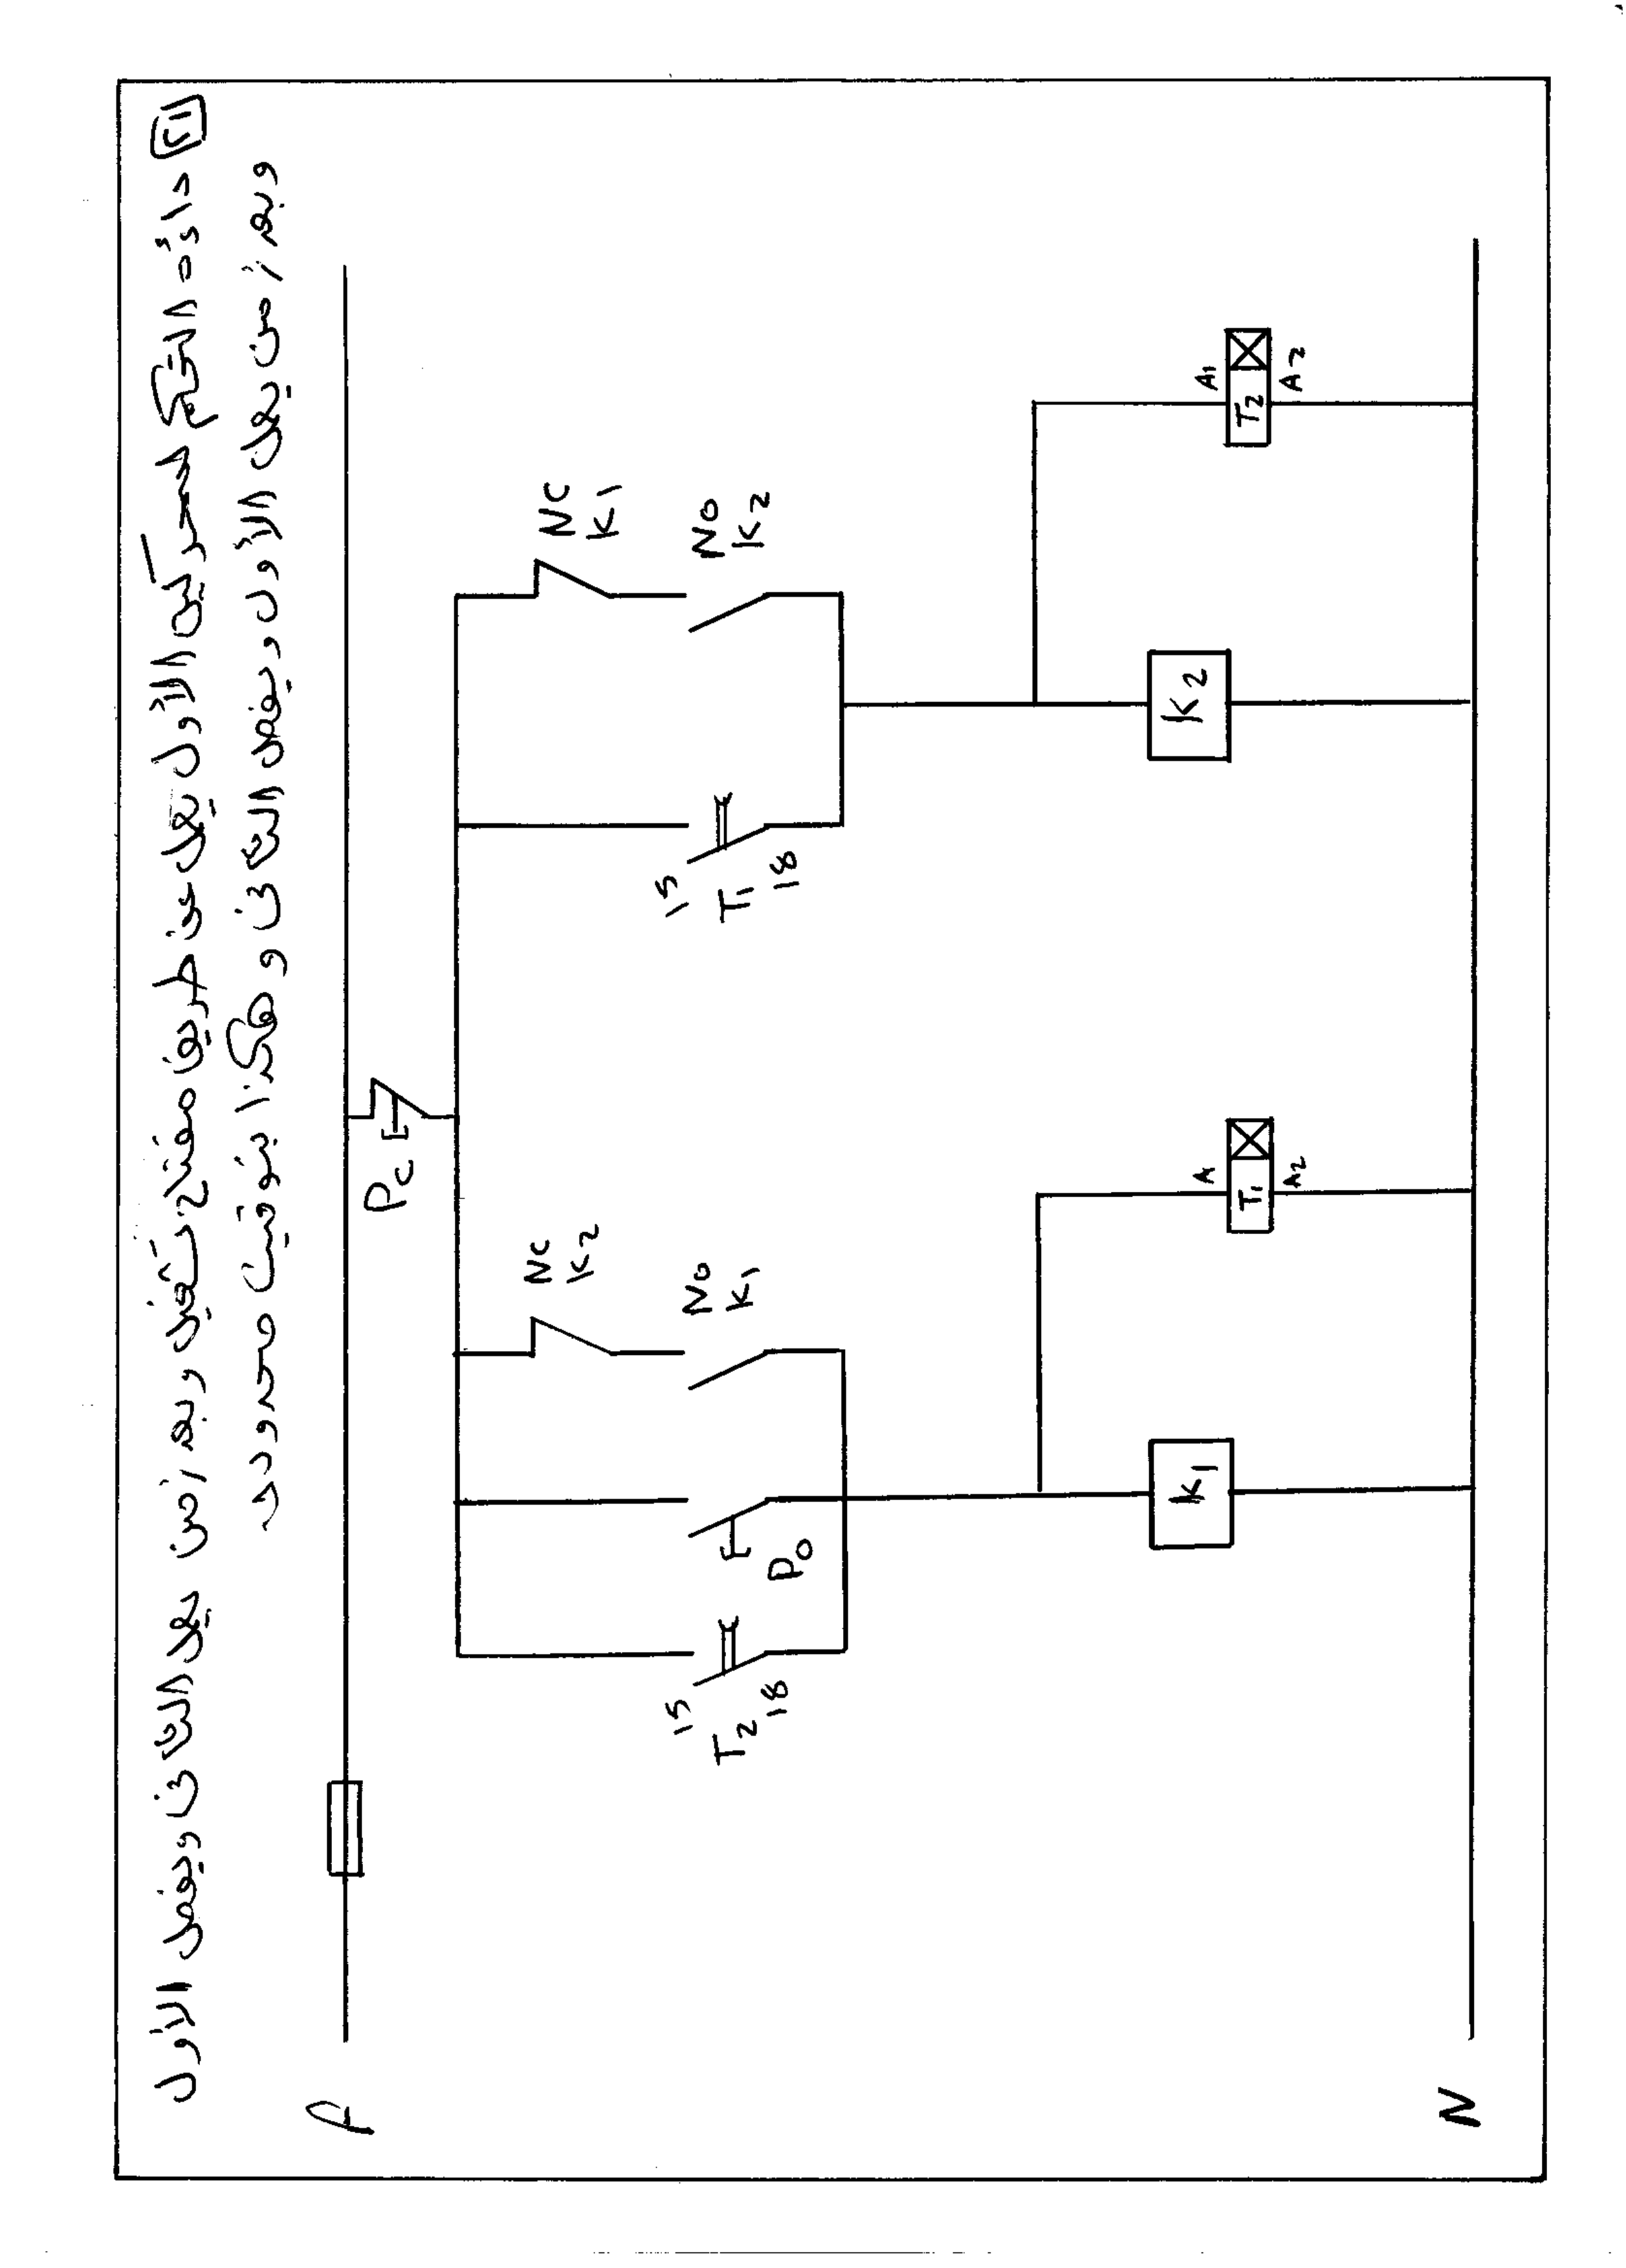 ٢١ دائرة التحكم لمحركين الأول يعمل عن طريق مفتاح تشغيل وبعد زمن يعمل الثانى ويفصل الأول
وبعد زمن يعمل الأول ويفصل الثانى وهكذا بتوقيت محدود
P
Pc
NC K2
NC K1
15 T2 18
Po
NO K1
15 T1 18
NO K2
K1
A T1 A2
K2
A1 T2 A2
N